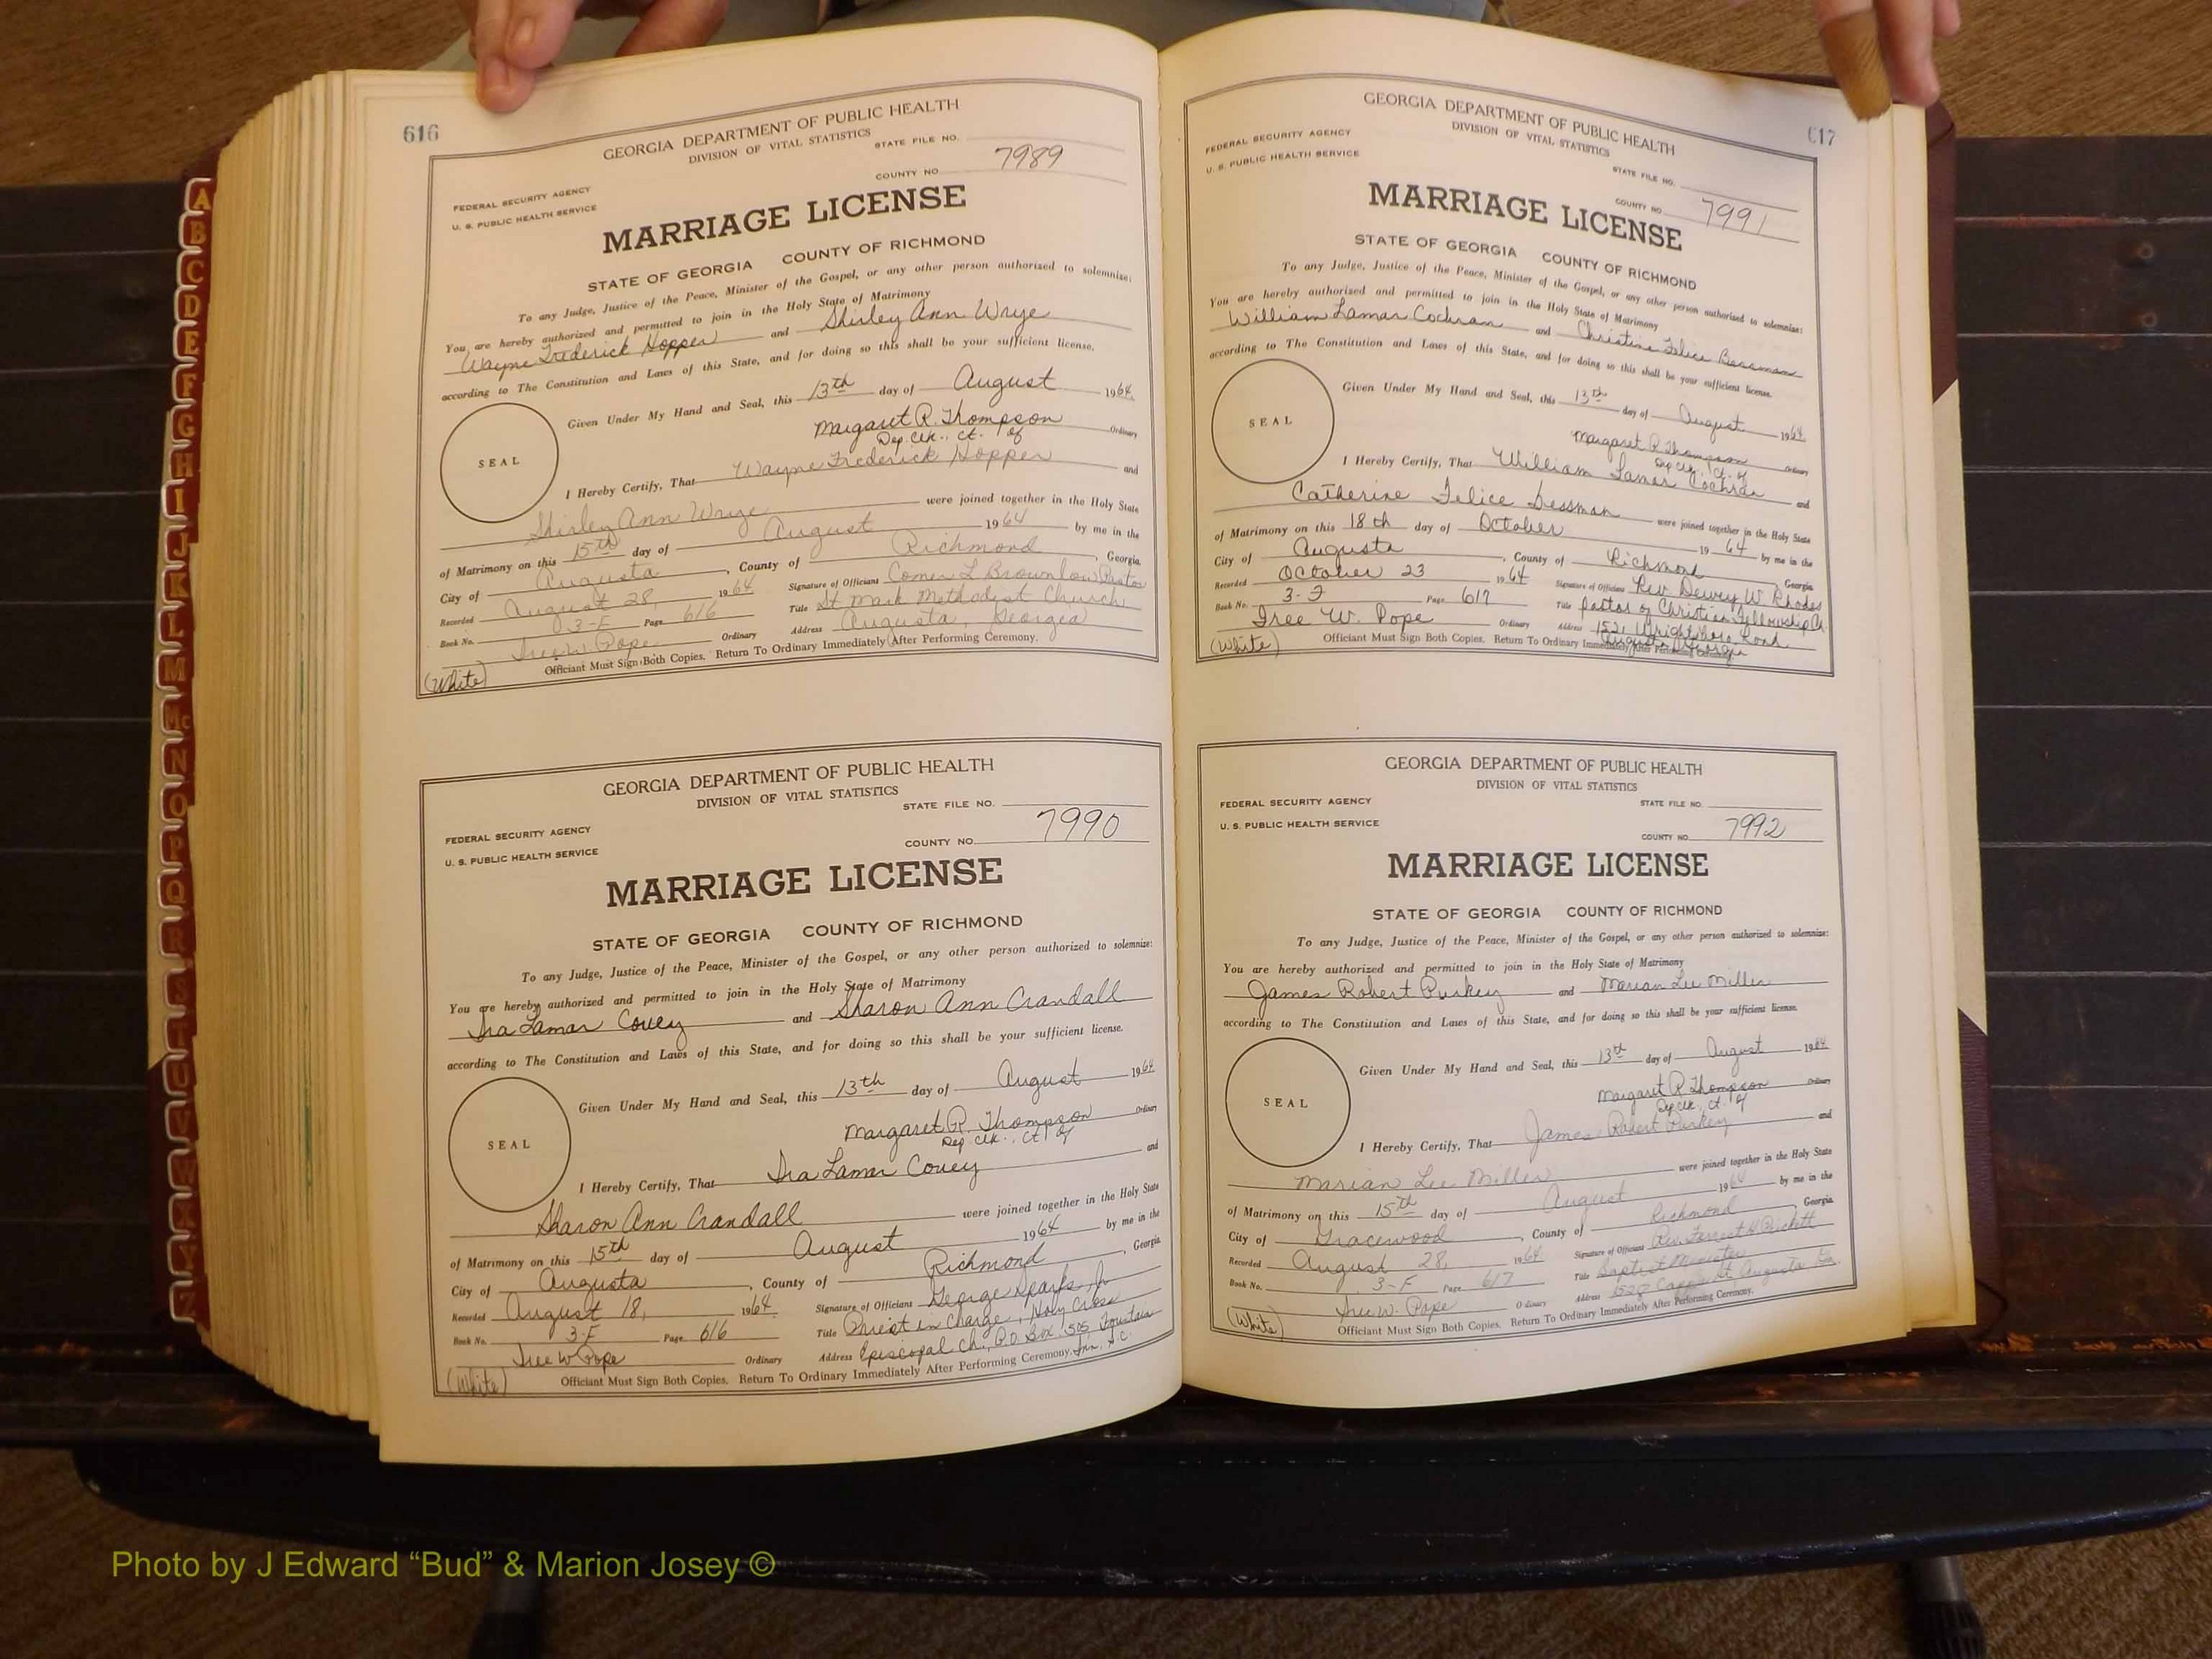 A
B
C
D
E
F
G
H
I
J
K
L
M
Mc
N
O
P
Q
R
S
T
U
V
W
X
Y
Z
616
GEORGIA DEPARTMENT OF PUBLIC HEALTH
DIVISION OF VITAL STATISTICS
STATE FILE NO.
FEDERAL SECURITY AGENCY
COUNTY NO. 7989
U. S. PUBLIC HEALTH SERVICE
MARRIAGE LICENSE
STATE OF GEORGIA COUNTY OF RICHMOND
To any Judge, Justice of the Peace, Minister of the Gospel, or any other person authorized to solemnize:
You are hereby authorized and permitted to join in the Holy State of Matrimony
Wayne Frederick Hopper and Shirley Ann Wrye
according to The Constitution and Laws of this State, and for doing so this shall be your sufficient license.
Given Under My Hand and Seal, this 13th day of August 1964
Margaret R. Thompson Ordinary
Dep. Clk., Ct. of
SEAL
I Hereby Certify, That Wayne Frederick Hopper and
Shirley Ann Wrye were joined together in the Holy State
of Matrimony on this 15th day of August 1964 by me in the
City of Augusta, County of Richmond, Georgia.
Recorded August 28, 1964 Signature of Officiant Comer L Brownlow Pastor
Book No. 3-F Page 616 Title St Mark Methodist Church
Tree W. Pope Ordinary Address Augusta, Georgia
(White) Officiant Must Sign Both Copies. Return To Ordinary Immediately After Performing Ceremony.
GEORGIA DEPARTMENT OF PUBLIC HEALTH
DIVISION OF VITAL STATISTICS
STATE FILE NO.
FEDERAL SECURITY AGENCY
COUNTY NO. 7990
U. S. PUBLIC HEALTH SERVICE
MARRIAGE LICENSE
STATE OF GEORGIA COUNTY OF RICHMOND
To any Judge, Justice of the Peace, Minister of the Gospel, or any other person authorized to solemnize:
You are hereby authorized and permitted to join in the Holy State of Matrimony
Ira Lamar Covey and Sharon Ann Crandall
according to The Constitution and Laws of this State, and for doing so this shall be your sufficient license.
Given Under My Hand and Seal, this 13th day of August 1964
Margaret R. Thompson Ordinary
Dep. Clk., Ct. of
SEAL
I Hereby Certify, That Ira Lamar Covey and
Sharon Ann Crandall were joined together in the Holy State
of Matrimony on this 15th day of August 1964 by me in the
City of Augusta, County of Richmond, Georgia.
Recorded August 18, 1964 Signature of Officiant George Sparks, Jr
Book No. 3-F Page 616 Title Priest in Charge, Holy Cross
Tree W Pope Ordinary Address Episcopal Ch., P.O. Box 505 Fountain Inn, S.C.
(White) Officiant Must Sign Both Copies. Return To Ordinary Immediately After Performing Ceremony.
617
GEORGIA DEPARTMENT OF PUBLIC HEALTH
DIVISION OF VITAL STATISTICS
FEDERAL SECURITY AGENCY
STATE FILE NO.
U. S. PUBLIC HEALTH SERVICE
COUNTY NO. 7991
MARRIAGE LICENSE
STATE OF GEORGIA COUNTY OF RICHMOND
To any Judge, Justice of the Peace, Minister of the Gospel, or any other person authorized to solemnize:
You are hereby authorized and permitted to join in the Holy State of Matrimony
William Lamar Cochran and Christine Felice
according to The Constitution and Laws of this State, and for doing so this shall be your sufficient license.
Given Under My Hand and Seal, this 13th day of August 1964
Margaret R Thompson Ordinary
Dep Clk., Ct. of
SEAL
I Hereby Certify, That William Lamar Cochran and
Catherine Felice Dessman were joined together in the Holy State
of Matrimony on this 18th day of October 1964 by me in the
City of Augusta, County of Richmond, Georgia.
Recorded October 23 1964 Signature of Officiant Rev Dewey W. Rhodes
Book No. 3-F Page 617 Title Pastor of Christian Fellowship Ch
Tree W. Pope Ordinary Address 1521 Wrightsboro Road
Augusta Georgia
(White) Officiant Must Sign Both Copies. Return To Ordinary Immediately After Performing Ceremony.
GEORGIA DEPARTMENT OF PUBLIC HEALTH
DIVISION OF VITAL STATISTICS
FEDERAL SECURITY AGENCY
STATE FILE NO.
U. S. PUBLIC HEALTH SERVICE
COUNTY NO. 7992
MARRIAGE LICENSE
STATE OF GEORGIA COUNTY OF RICHMOND
To any Judge, Justice of the Peace, Minister of the Gospel, or any other person authorized to solemnize:
You are hereby authorized and permitted to join in the Holy State of Matrimony
James Robert Purkey and Marian Lee Miller
according to The Constitution and Laws of this State, and for doing so this shall be your sufficient license.
Given Under My Hand and Seal, this 13th day of August 1964
Margaret R Thompson Ordinary
Dep Clk., Ct. of
SEAL
I Hereby Certify, That James Robert Purkey and
Marian Lee Miller were joined together in the Holy State
of Matrimony on this 15th day of August 1964 by me in the
City of Gracewood, County of Richmond, Georgia.
Recorded August 28, 1964 Signature of Officiant Rev Forrest H Bickett
Book No. 3-F Page 617 Title Baptist Minister
Tree W. Pope Ordinary Address St, Augusta Ga.
(White) Officiant Must Sign Both Copies. Return To Ordinary Immediately After Performing Ceremony.
Photo by J Edward “Bud” & Marion Josey ©